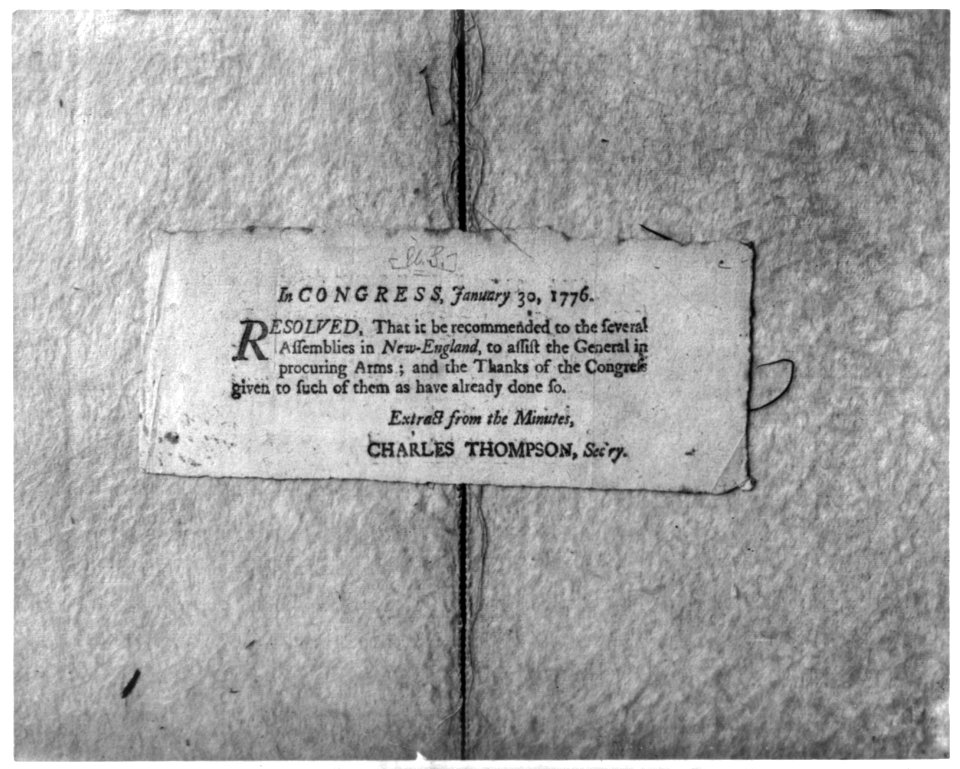 In CONGRESS, January 30, 1776.
RESOLVED, That it be recommended to the ſeveral
Aſſemblies in New-England, to aſſiſt the General in
procuring Arms; and the Thanks of the Congreſs
given to ſuch of them as have already done ſo.
Extract from the Minutes,
CHARLES THOMPSON, Sec'ry.